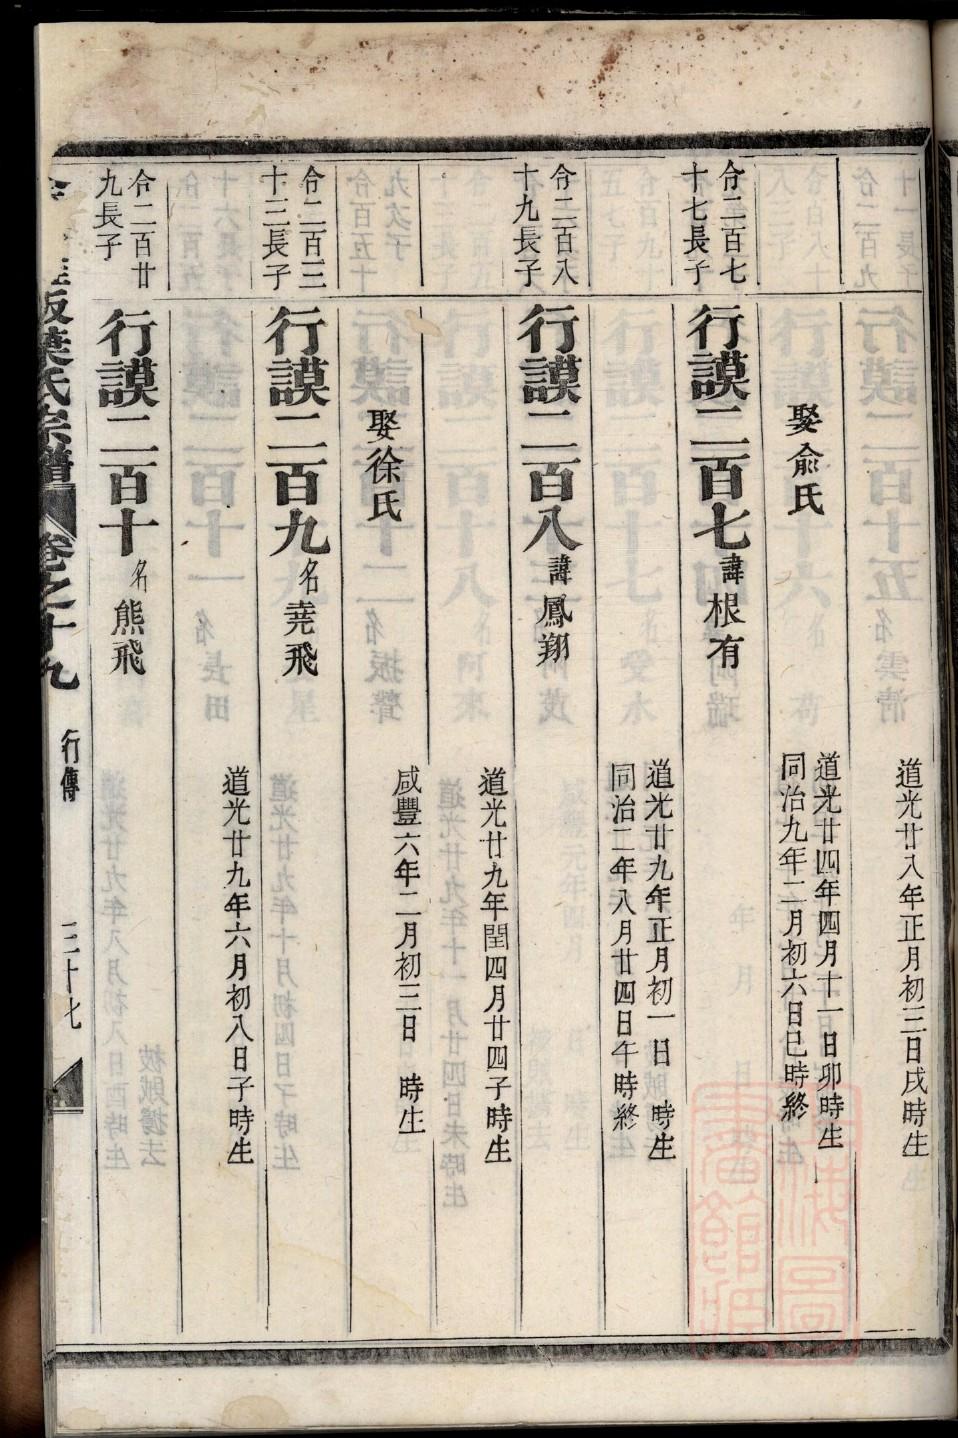 道光廿八年正月初三日戌時生
娶俞氏
道光廿四年四月十一日卯時生
同治九年二月初六日巳時終
合二百七
十七長子
行謨二百七 諱根有
道光廿九年正月初一日 時生
同治二年八月廿四日午時終
合二百八
十九長子
行謨二百八 諱鳳翔
道光廿九年閏四月廿四子時生
娶徐氏
咸豐六年二月初三日 時生
合二百三
十三長子
行謨二百九 名堯飛
道光廿九年六月初八日子時生
合二百廿
九長子
行謨二百十 名熊飛
葉氏宗譜 卷之十九 行傳 三十七